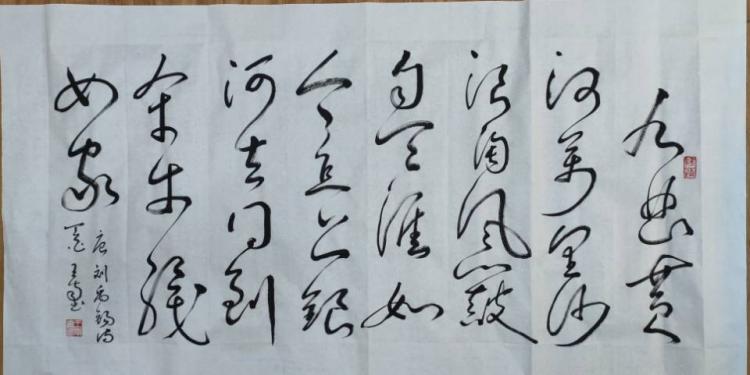 九曲黄
河萬里沙
浪淘風簸
自天涯如
今直上銀
河去同到
牽牛織
女家
唐刘禹锡诗